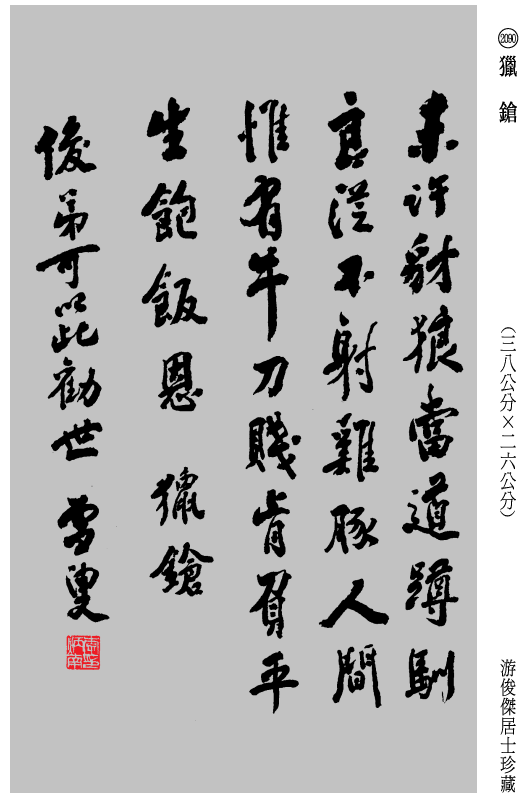 2090 獵鎗
(三八公分×二六公分)
游俊傑居士珍藏
未許豺狼當道蹲馴
良從不射雞豚人間
惟有牛刀賤肯負平
生飽飯恩 獵鎗
俊弟可以此勸世 雪叟